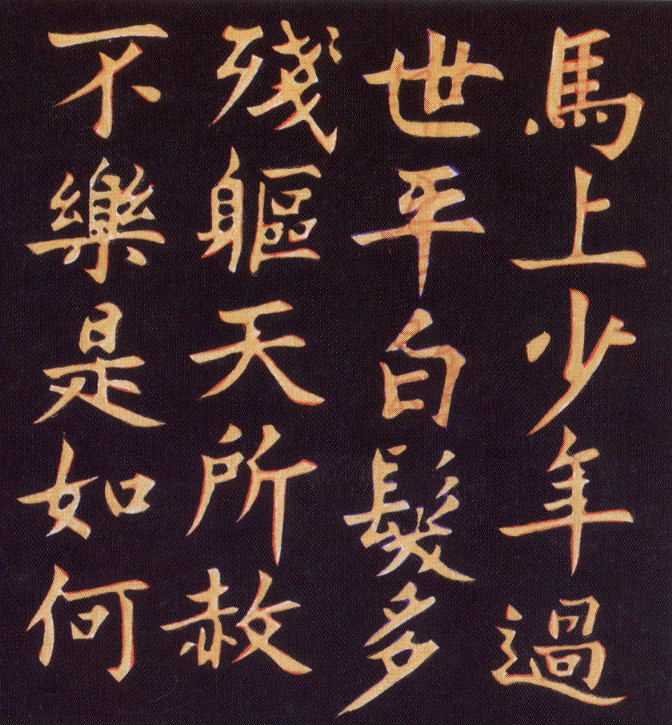 馬上少年過
世平白髮多
残軀天所赦
不樂是如何